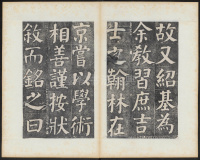 故又紹基為
余教習庶吉
士之翰林在
京嘗以學術
相善謹按狀
敘而銘之曰